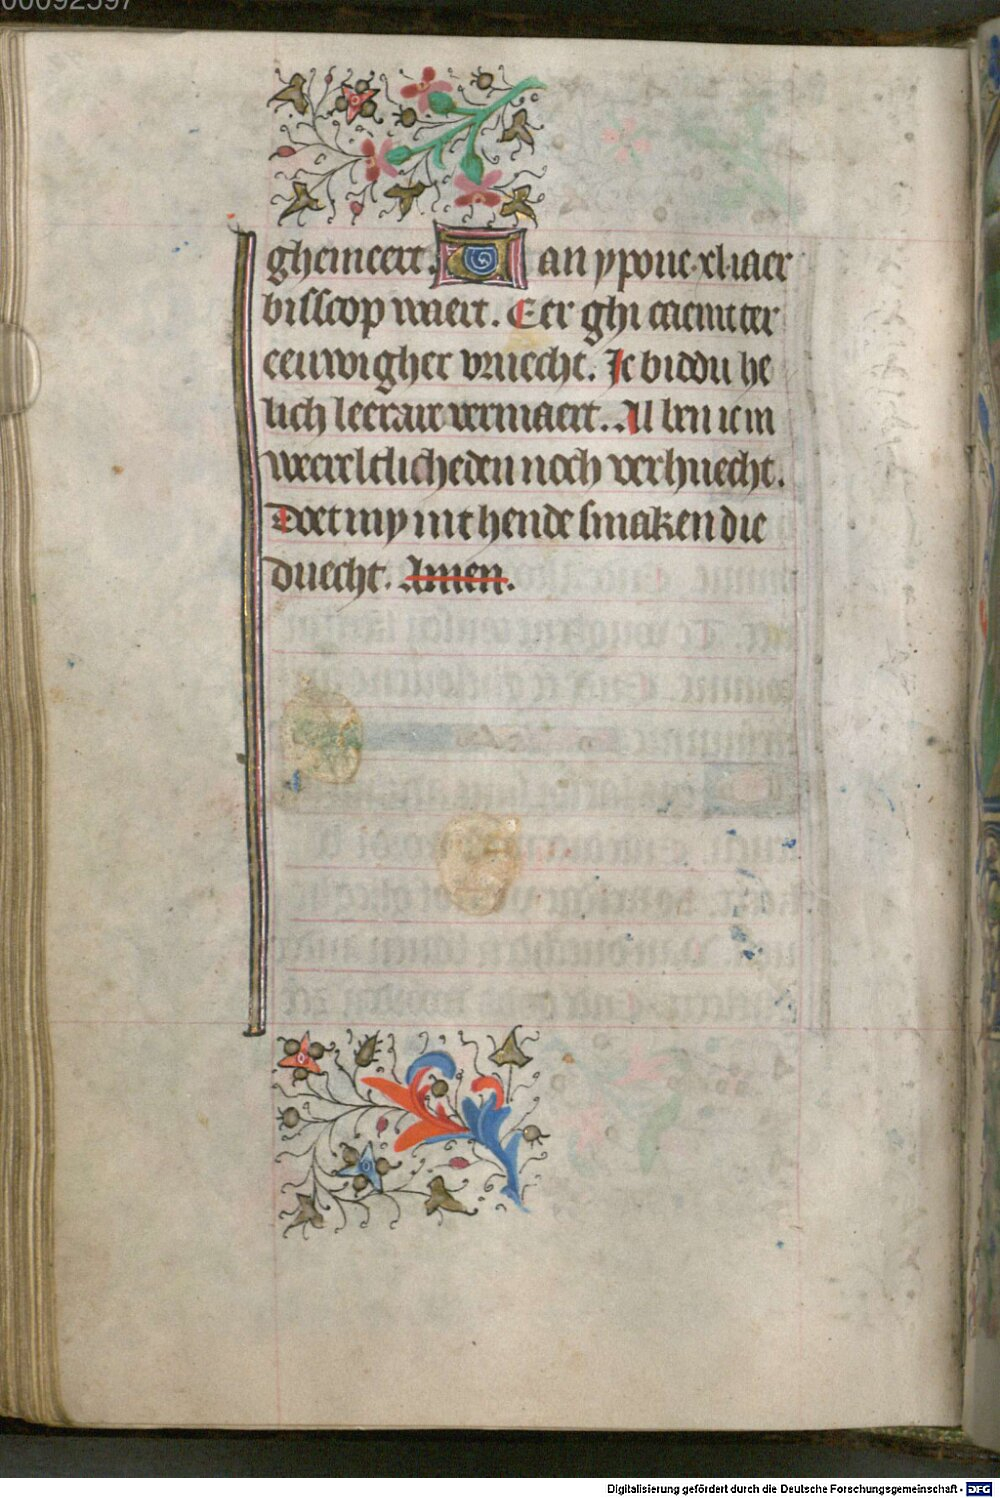 00092597
ghemeert. Van ypone .xl. iaer
bisscop waert. Eer ghi caemt ter
eeuwigher vruecht. Ic biddu he
lich leerare vermaert. Al ben ic in
weereltlicheden noch verhuecht.
Doet my int hende smaken die
duecht. Amen.
Digitalisierung gefördert durch die Deutsche Forschungsgemeinschaft - DFG